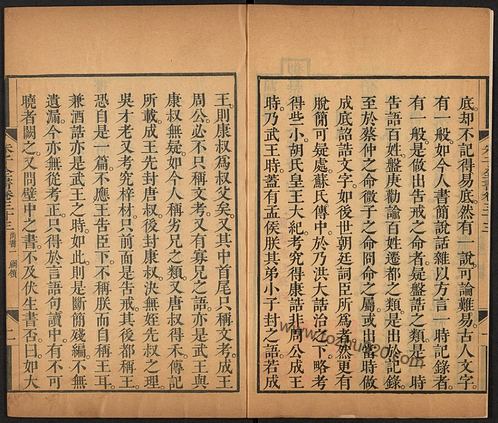 底却不記得易底然有一說可論難易古人文字
有一般如今人書簡說話雜以方言一時記錄者
有一般是做出告戒之命者疑盤誥之類是一時
告語百姓盤庚勸諭百姓遷都之類是出於記錄
至於蔡仲之命微子之命冏命之屬或出當時做
成底詔誥文字如後世朝廷詞臣所為者然更有
脫簡可疑處蘇氏傳中於乃洪大誥治之下略考
得些小胡氏皇王大紀考究得康誥非周公成王
時乃武王時蓋有孟侯朕其弟小子封之語若成
王則康叔為叔父矣又其中首尾只稱文考成王
周公必不只稱文考又有寡兄之語亦是武王與
康叔無疑如今人稱劣兄之類又唐叔得禾傳記
所載成王先封唐叔後封康叔決無姪先叔之理
吳才老又考究梓材只前面是告戒其後都稱王
恐自是一篇不應王告臣下不稱朕而自稱王耳
兼酒誥亦是武王之時如此則是斷簡殘編不無
遺漏今亦無從考正只得於言語句讀中有不可
曉者闕之又問壁中之書不及伏生書否曰如大
尚書 綱領